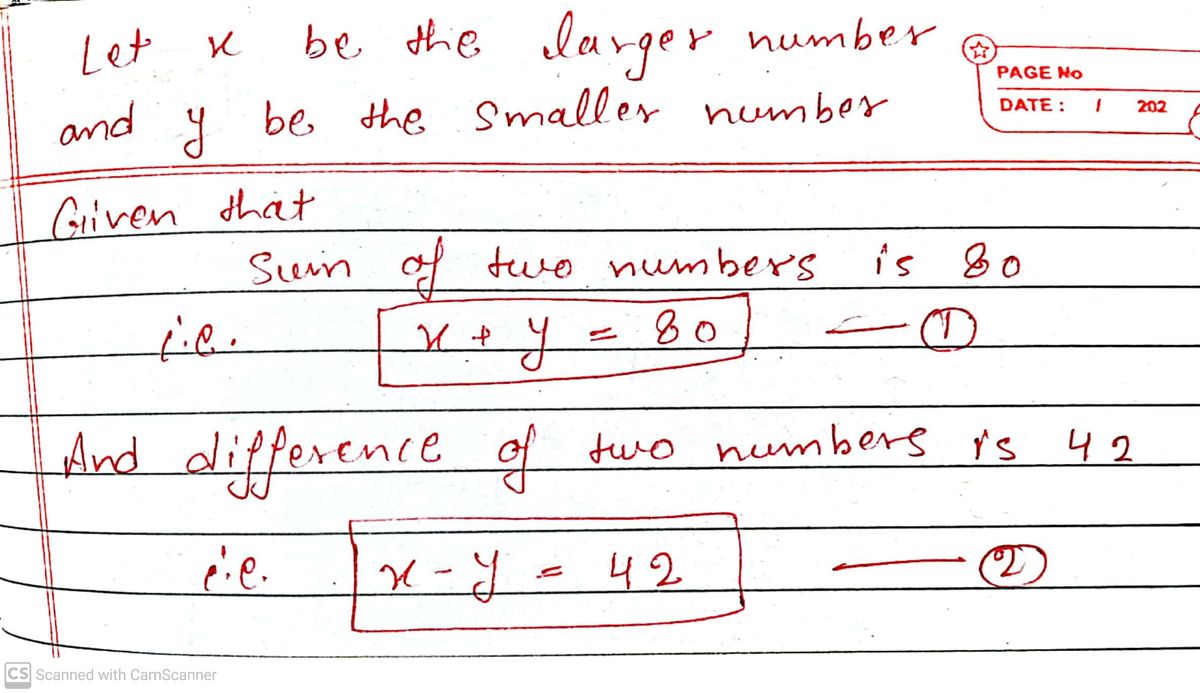 Let x be the larger number
PAGE No
DATE : / 202
and y be the smaller number
Given that
Sum of two numbers is 80
i.e. x + y = 80 — ①
And difference of two numbers is 42
i.e. x - y = 42 — ②
CS Scanned with CamScanner